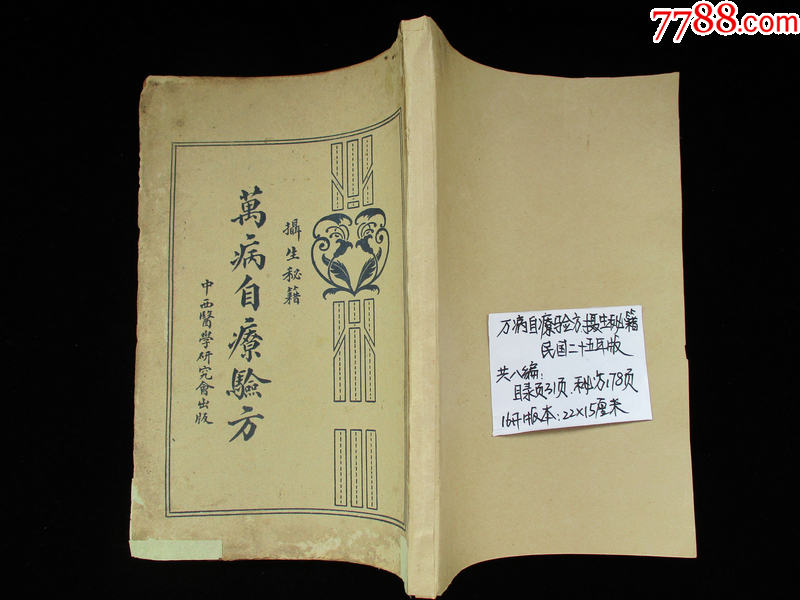 7788.com
攝生秘籍
萬病自療驗方
中西醫學研究會出版
万病自療驗方摄生秘籍
民国二十五年版
共八編:
目录页31页.秘方178页
16開版本:22×15厘米